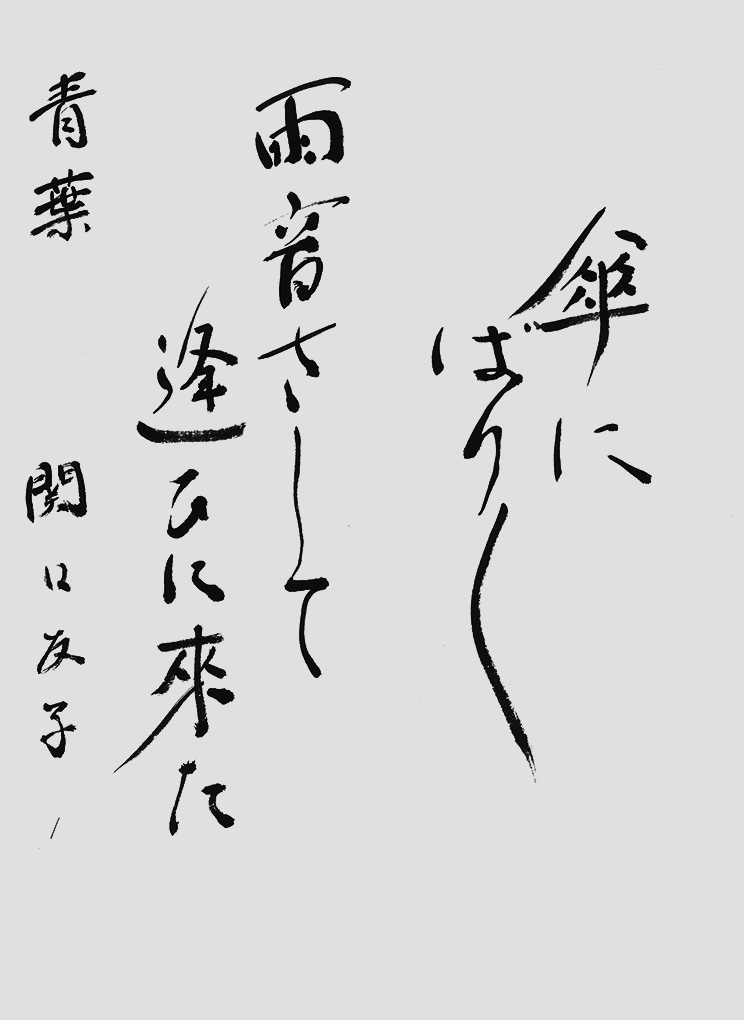 傘に
ばり〱
雨音さして
逢ひに來た
青葉　関口友子